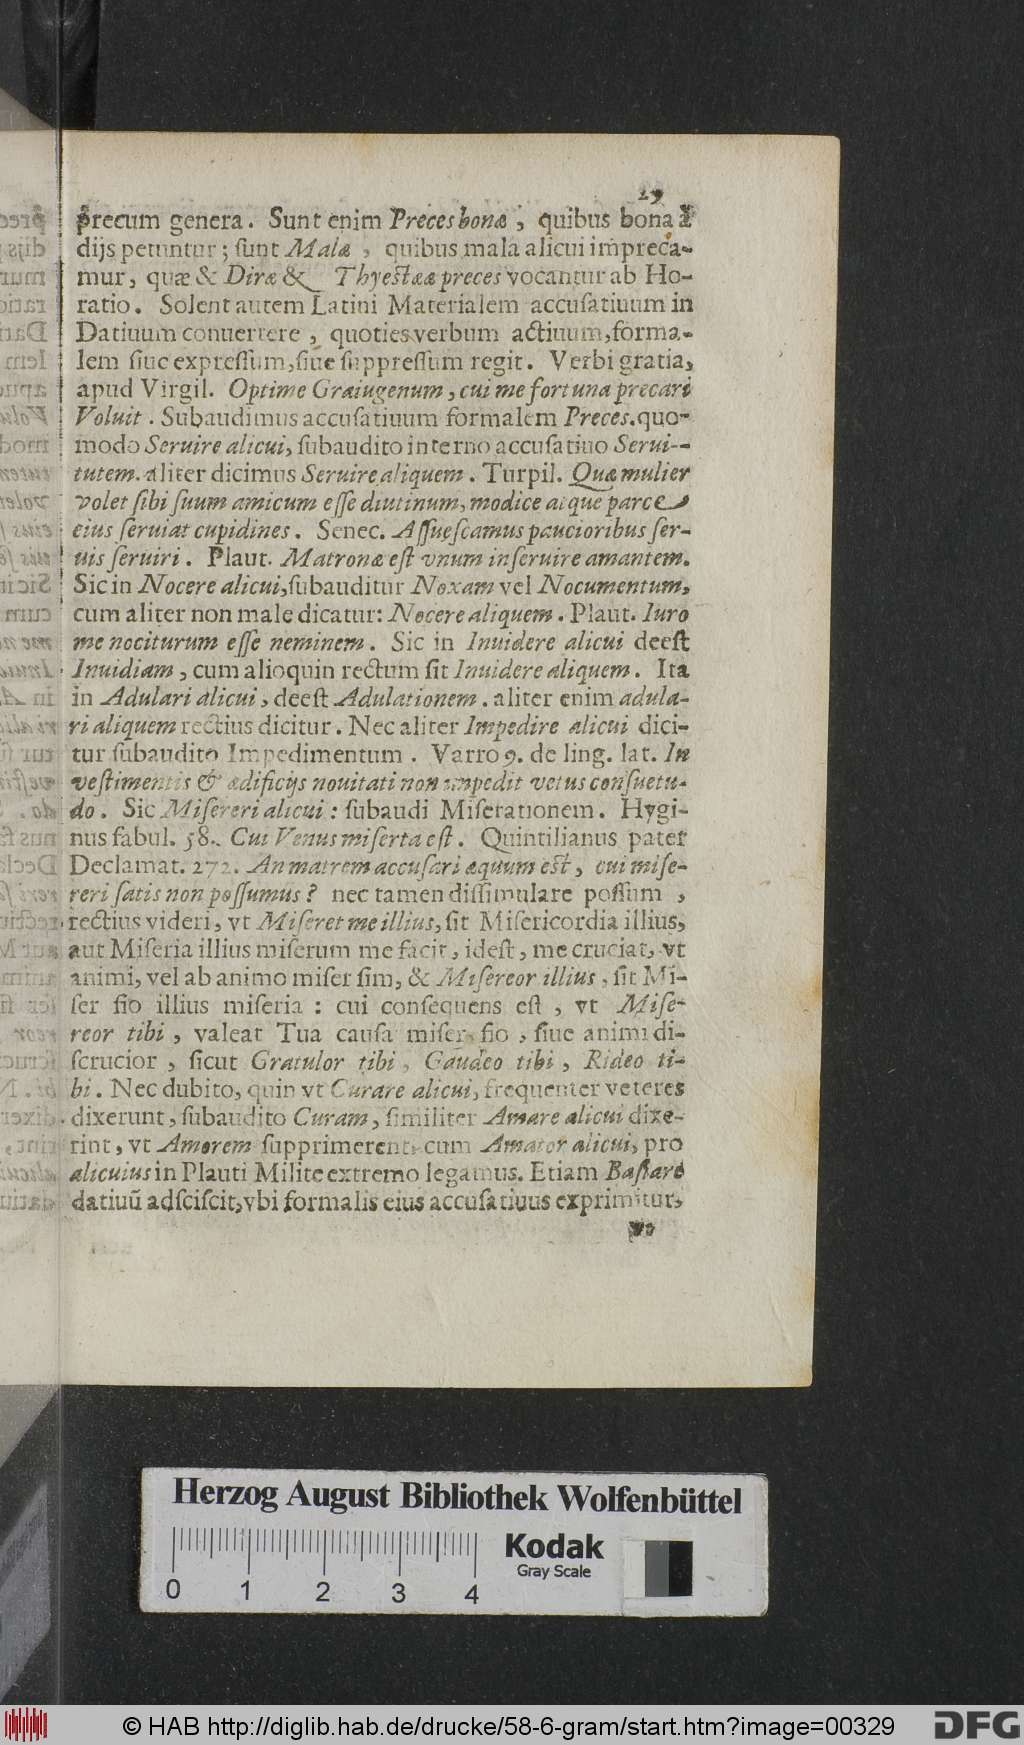 29
precum genera. Sunt enim Preces bonæ, quibus bona à
dijs petuntur; sunt Malæ, quibus mala alicui impreca-
mur, quæ & Diræ & Thyestææ preces vocantur ab Ho-
ratio. Solent autem Latini Materialem accusatiuum in
Datiuum conuertere, quoties verbum actiuum, forma-
lem siue expressum, siue suppressum regit. Verbi gratia,
apud Virgil. Optime Graiugenum, cui me fortuna precari
Voluit. Subaudimus accusatiuum formalem Preces. quo-
modo Seruire alicui, subaudito interno accusatiuo Serui-
tutem. aliter dicimus Seruire aliquem. Turpil. Quæ mulier
volet sibi suum amicum esse diutinum, modice atque parce
eius seruiat cupidines. Senec. Assuescamus paucioribus ser-
uis seruiri. Plaut. Matronæ est vnum inseruire amantem.
Sic in Nocere alicui, subauditur Noxam vel Nocumentum,
cum aliter non male dicatur: Nocere aliquem. Plaut. Iuro
me nociturum esse neminem. Sic in Inuidere alicui deest
Inuidiam, cum alioquin rectum sit Inuidere aliquem. Ita
in Adulari alicui, deest Adulationem. aliter enim adula-
ri aliquem rectius dicitur. Nec aliter Impedire alicui dici-
tur subaudito Impedimentum. Varro 9. de ling. lat. In
vestimentis & ædificijs nouitati non impedit vetus consuetu-
do. Sic Misereri alicui: subaudi Miserationem. Hygi-
nus fabul. 58. Cui Venus miserta est. Quintilianus pater
Declamat. 272. An matrem accusari æquum est, cui mise-
reri satis non possumus? nec tamen dissimulare possum,
rectius videri, vt Miseret me illius, sit Misericordia illius,
aut Miseria illius miserum me facit, idest, me cruciat, vt
animi, vel ab animo miser sim, & Misereor illius, sit Mi-
ser fio illius miseria: cui consequens est, vt Mise-
reor tibi, valeat Tua causa miser fio, siue animi di-
scrucior, sicut Gratulor tibi, Gaudeo tibi, Rideo ti-
bi. Nec dubito, quin vt Curare alicui, frequenter veteres
dixerunt, subaudito Curam, similiter Amare alicui dixe-
rint, vt Amorem supprimerent, cum Amator alicui, pro
alicuius in Plauti Milite extremo legamus. Etiam Basiare
datiuū adsciscit, vbi formalis eius accusatiuus exprimitur,
Herzog August Bibliothek Wolfenbüttel
Kodak
Gray Scale
0 1 2 3 4
© HAB http://diglib.hab.de/drucke/58-6-gram/start.htm?image=00329
DFG